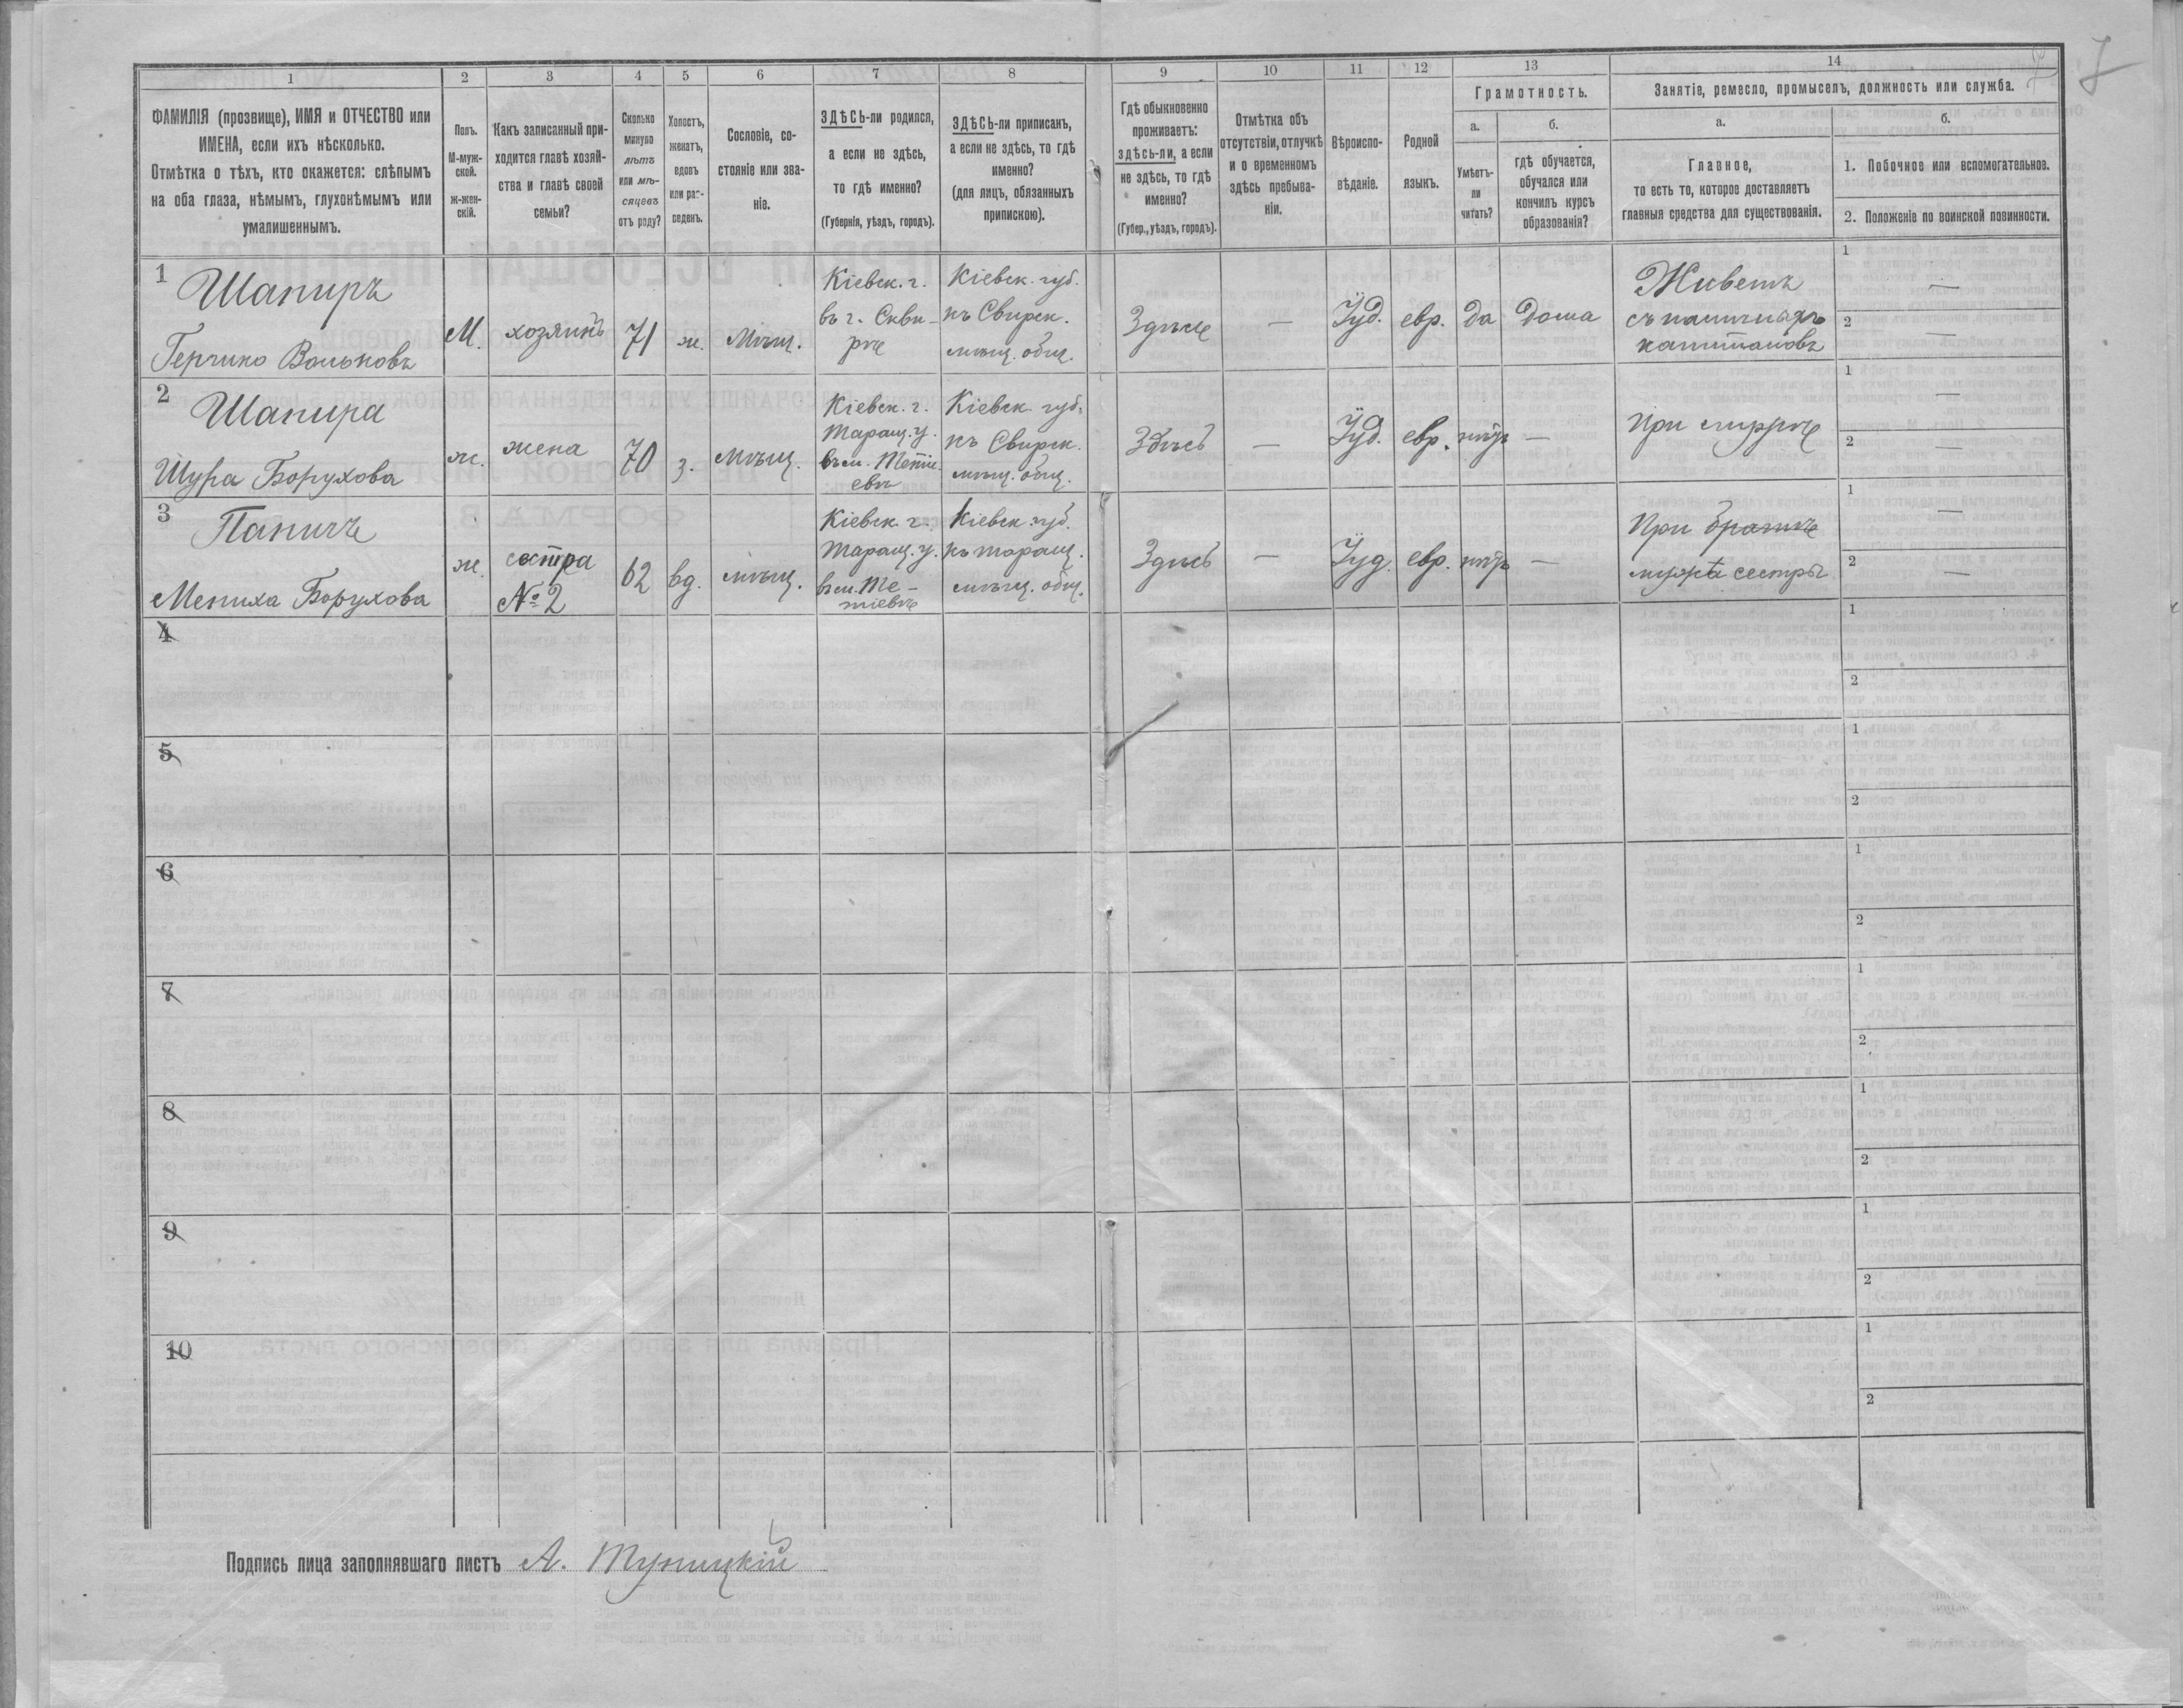 7
1 2 3 4 5 6 7 8 9 10 11 12 13 14
ФАМИЛІЯ (прозвище), ИМЯ и ОТЧЕСТВО или
ИМЕНА, если ихъ нѣсколько.
Отмѣтка о тѣхъ, кто окажется: слѣпымъ
на оба глаза, нѣмымъ, глухонѣмымъ или
умалишеннымъ.
Полъ.
М-муж-
ской.
ж-жен-
скій.
Какъ записанный при-
ходится главѣ хозяй-
ства и главѣ своей
семьи?
Сколько
минуло
лѣтъ
или мѣ-
сяцевъ
отъ роду?
Холостъ,
женатъ,
вдовъ
или раз-
веденъ.
Сословіе, со-
стояніе или зва-
ніе.
ЗДѢСЬ-ли родился,
а если не здѣсь,
то гдѣ именно?
(Губернія, уѣздъ, городъ).
ЗДѢСЬ-ли приписанъ,
а если не здѣсь, то гдѣ
именно?
(для лицъ, обязанныхъ
припискою).
Гдѣ обыкновенно
проживаетъ:
здѣсь-ли, а если
не здѣсь, то гдѣ
именно?
(Губер., уѣздъ, городъ).
Отмѣтка объ
отсутствіи, отлучкѣ
и о временномъ
здѣсь пребыва-
ніи.
Вѣроиспо-
вѣданіе.
Родной
языкъ.
Грамотность.
а.
Умѣетъ-
ли
читать?
б.
гдѣ обучается,
обучался или
кончилъ курсъ
образованія?
Занятіе, ремесло, промыселъ, должность или служба.
а.
Главное,
то есть то, которое доставляетъ
главныя средства для существованія.
б.
1. Побочное или вспомогательное.
2. Положеніе по воинской повинности.
1
Шапиръ
Гершко Вольковъ
М.
хозяинъ
71
ж.
мѣщ.
Кіевск. г.
въ г. Скви-
рѣ
Кіевск. губ.
къ Свирск.
мѣщ. общ.
Здѣсь
—
Іуд.
евр.
да
дома
Живетъ
1 —
2 —
2
Шапира
Шура Борухова
ж.
жена
70
з.
мѣщ.
Кіевск. г.
Таращ. у.
въ м. Тетіе-
евѣ
Кіевск. губ.
къ Свирск.
мѣщ. общ.
Здѣсь
—
Іуд.
евр.
нѣтъ
—
При мужѣ
1 —
2 —
3
Папичъ
Мениха Борухова
ж.
сестра
№ 2
62
вд.
мѣщ.
Кіевск. г.
Таращ. у.
въ м. Те-
тіевѣ
Кіевск. губ.
къ Таращ.
мѣщ. общ.
Здѣсь
—
Іуд.
евр.
нѣтъ
—
При
мужѣ сестры
1 —
2 —
4
1
2
5
1
2
6
1
2
7
1
2
8
1
2
9
1
2
10
1
2
Подпись лица заполнявшаго листъ А. Туницкій